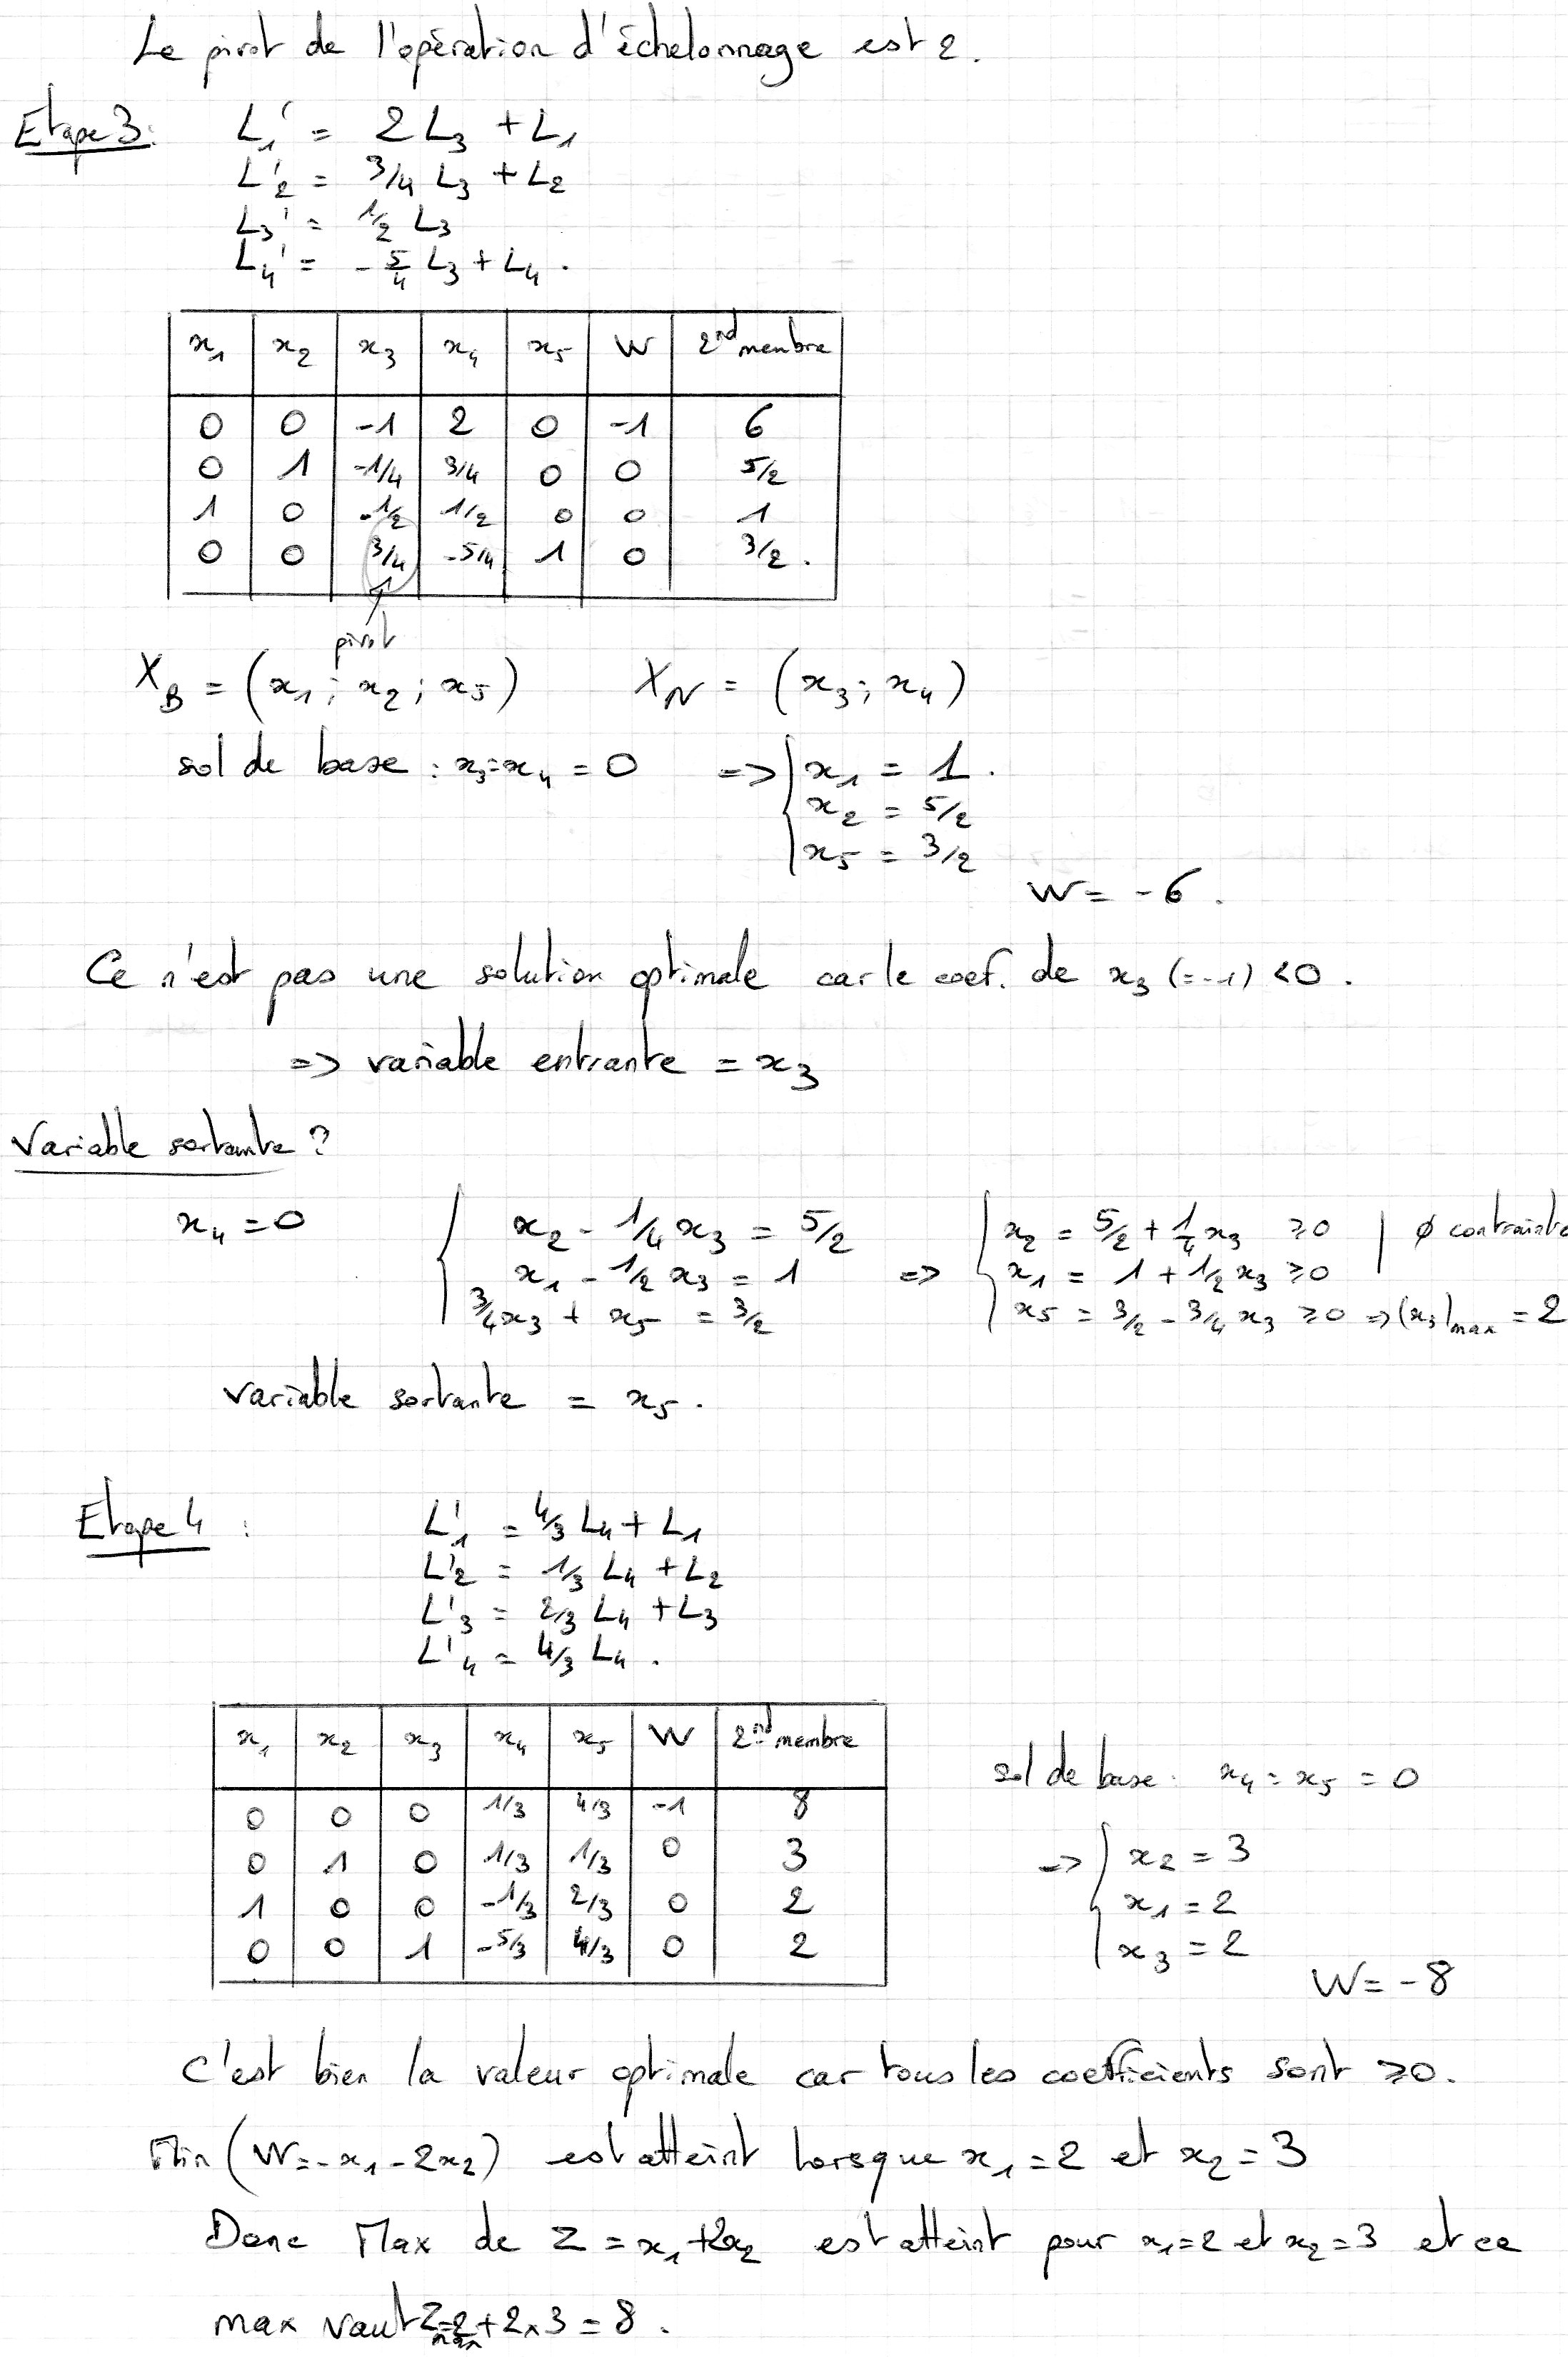 Le pivot de l'opération d'échelonnage est 2.
Etape 3:
L₁' = 2 L₃ + L₁
L'₂ = 3/4 L₃ + L₂
L₃' = 1/2 L₃
L₄' = - 5/4 L₃ + L₄.
x₁ x₂ x₃ x₄ x₅ W 2nd membre
0 0 -1 2 0 -1 6
0 1 -1/4 3/4 0 0 5/2
1 0 -1/2 1/2 0 0 1
0 0 3/4 -5/4 1 0 3/2.
pivot
X_B = (x₁ ; x₂ ; x₅) X_N = (x₃ ; x₄)
sol de base : x₃ = x₄ = 0 => x₁ = 1.
x₂ = 5/2
x₅ = 3/2
W = - 6.
Ce n'est pas une solution optimale car le coef. de x₃ (= -1) < 0.
=> variable entrante = x₃
Variable sortante ?
x₄ = 0 x₂ - 1/4 x₃ = 5/2 x₂ = 5/2 + 1/4 x₃ ≥ 0 | ∅ contrainte
x₁ - 1/2 x₃ = 1 => x₁ = 1 + 1/2 x₃ ≥ 0
3/4 x₃ + x₅ = 3/2 x₅ = 3/2 - 3/4 x₃ ≥ 0 => (x₃)max = 2
variable sortante = x₅.
Etape 4 :
L'₁ = 4/3 L₄ + L₁
L'₂ = 1/3 L₄ + L₂
L'₃ = 2/3 L₄ + L₃
L'₄ = 4/3 L₄.
x₁ x₂ x₃ x₄ x₅ W 2nd membre
0 0 0 1/3 4/3 -1 8
0 1 0 1/3 1/3 0 3
1 0 0 -1/3 2/3 0 2
0 0 1 -5/3 4/3 0 2
sol de base : x₄ = x₅ = 0
=> x₂ = 3
x₁ = 2
x₃ = 2
W = - 8
C'est bien la valeur optimale car tous les coefficients sont ≥ 0.
Min (W = - x₁ - 2x₂) est atteint lorsque x₁ = 2 et x₂ = 3
Donc Max de Z = x₁ + 2x₂ est atteint pour x₁ = 2 et x₂ = 3 et ce
max vaut Zmax = 2 + 2 × 3 = 8.